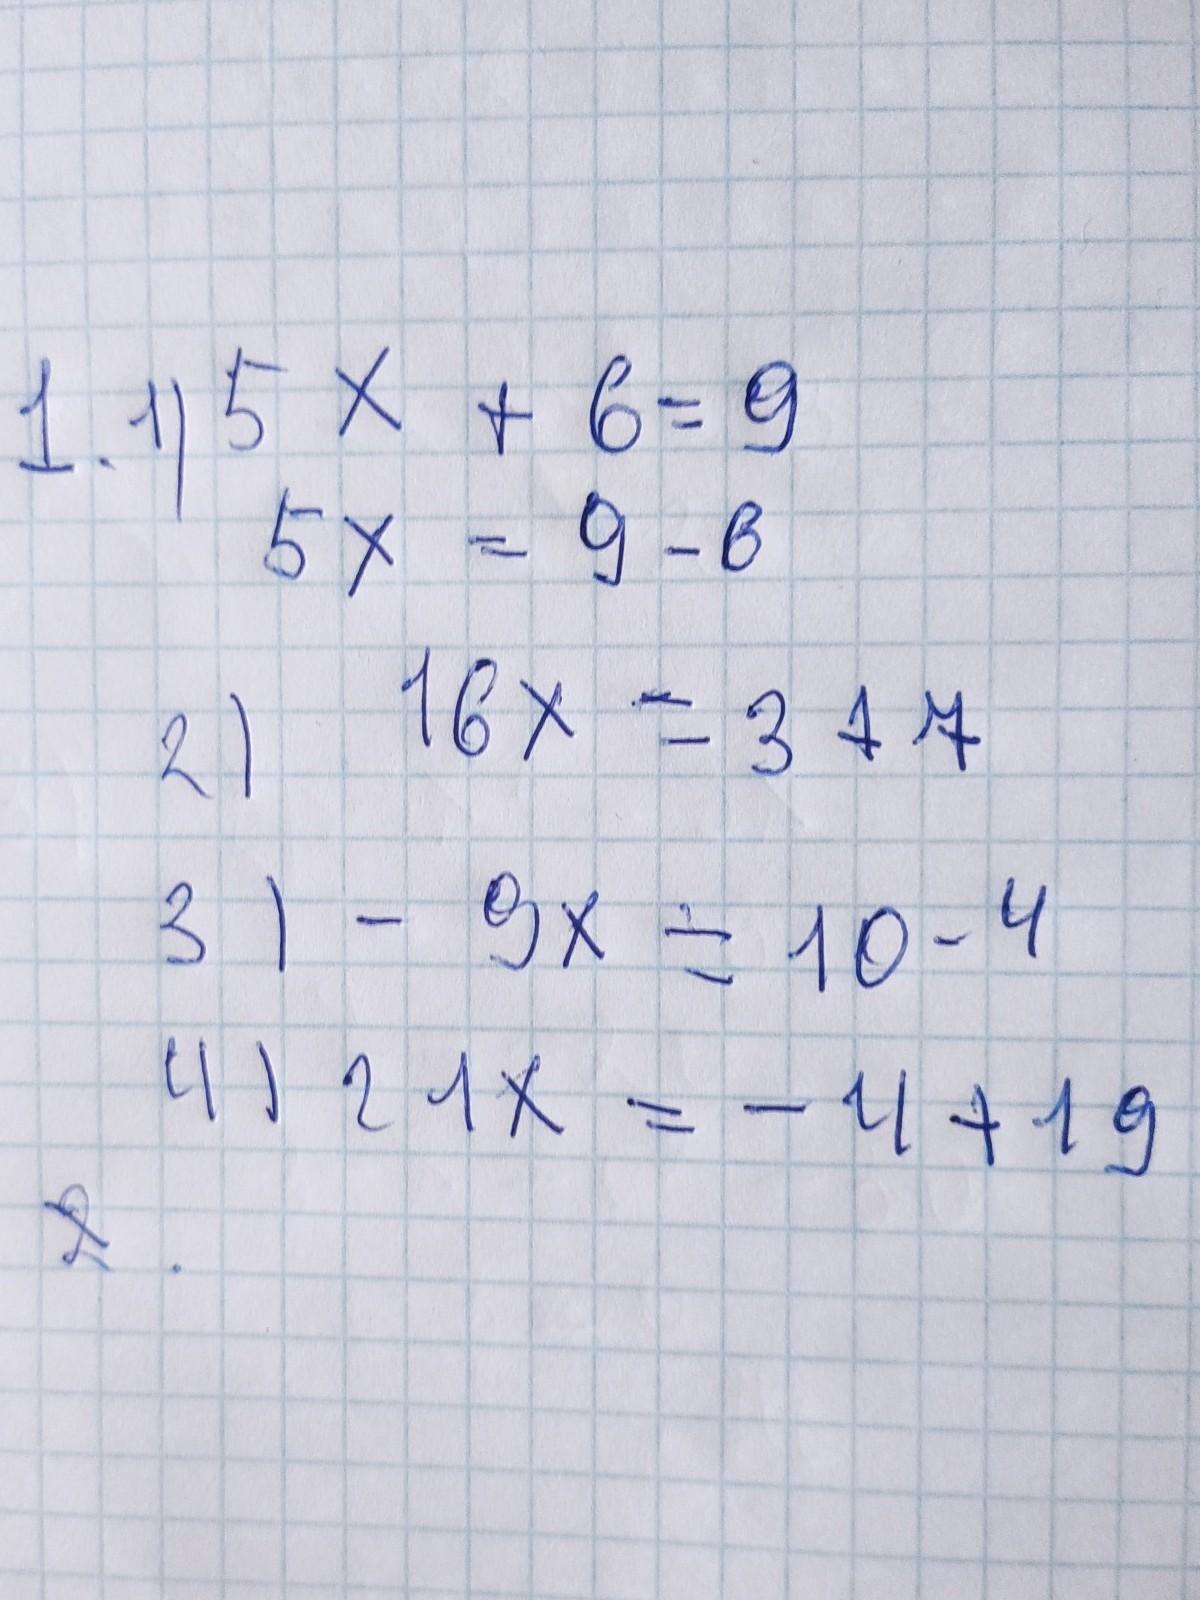 1. 1) 5x + 6 = 9
5x = 9 - 6
2) 16x = 3 + 7
3) - 9x = 10 - 4
4) 21x = - 4 + 19
2.